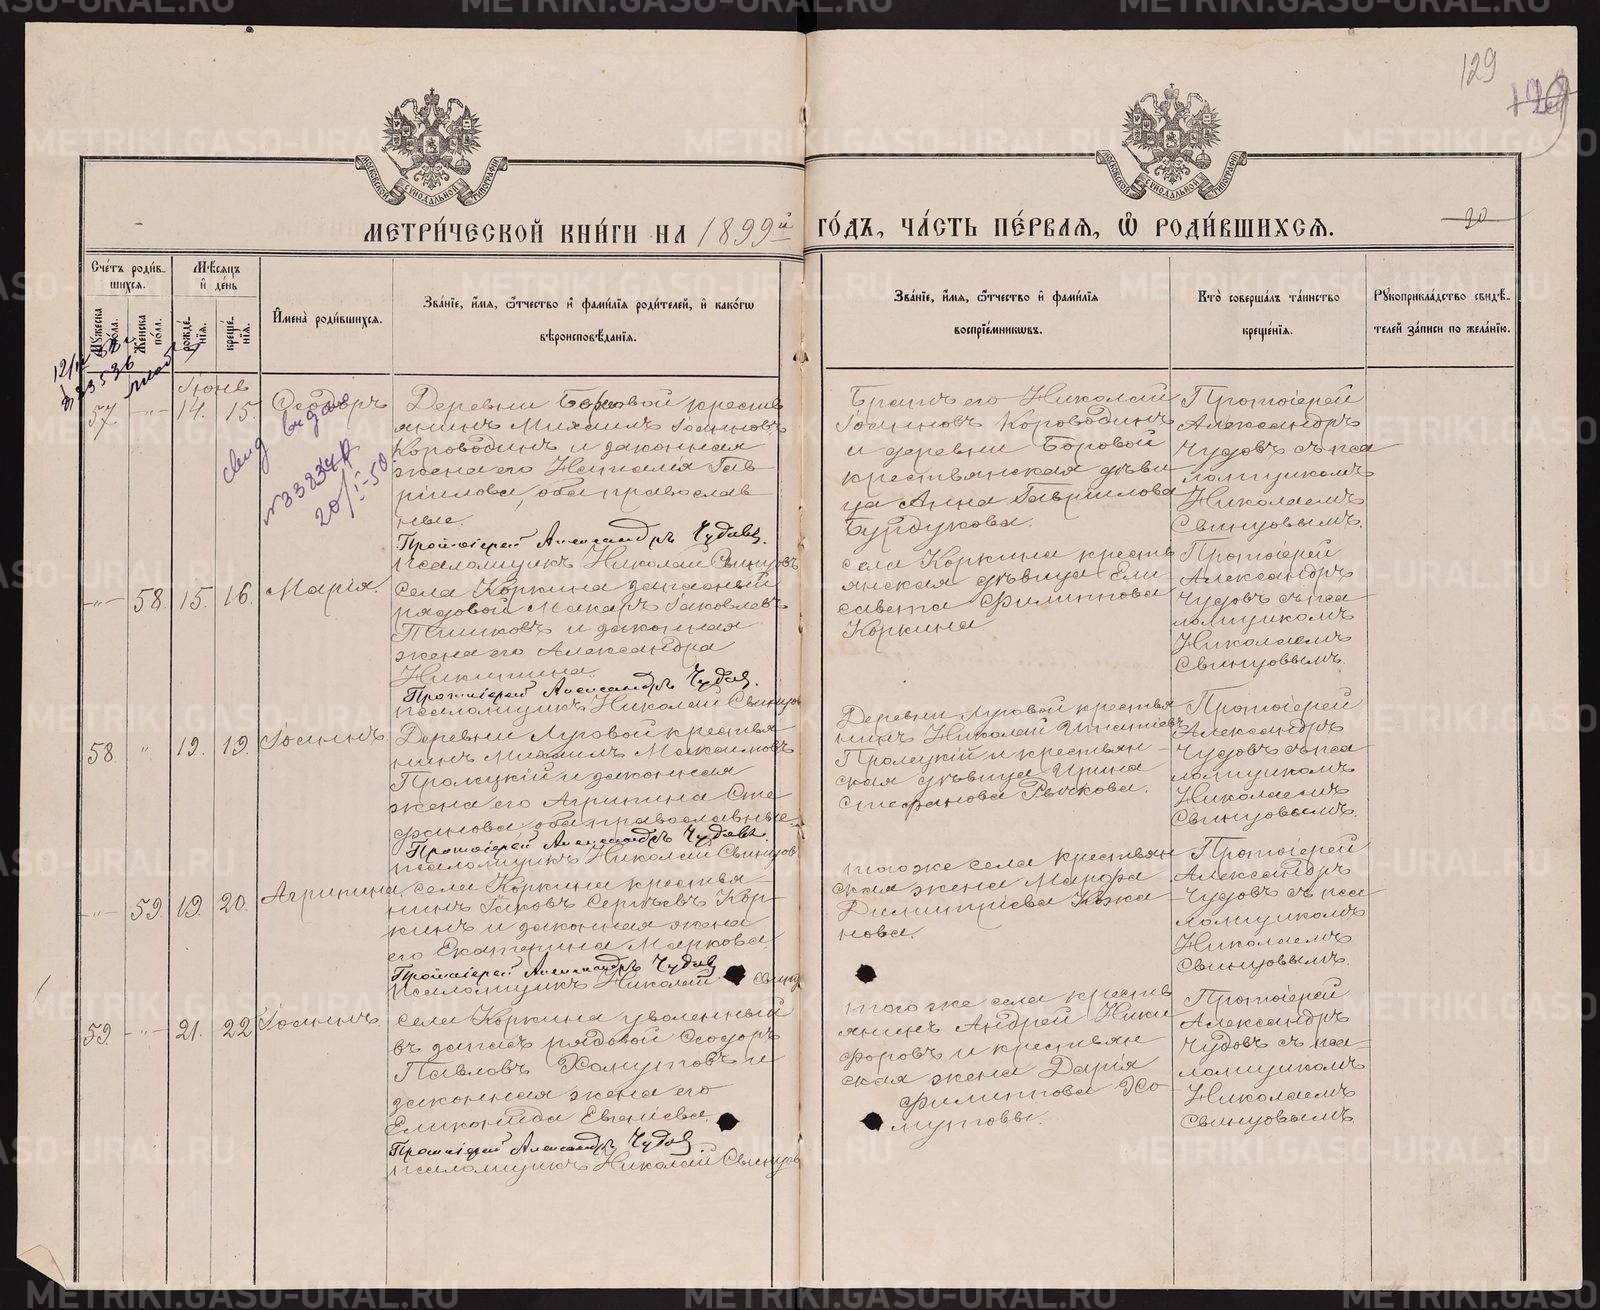 129
МОСКОВСКОЙ СѴНОДАЛЬНОЙ ТИПОГРАФІИ
МОСКОВСКОЙ СѴНОДАЛЬНОЙ ТИПОГРАФІИ
МЕТРИ́ЧЕСКОЙ КНИ́ГИ НА 1899й ГО́ДЪ, ЧА́СТЬ ПЕ́РВАЯ, Ѡ РОДИ́ВШИХСѦ.
Сче́тъ роди́в-
шихся.
Му́жеска по́ла.
Же́нска по́ла.
Мѣ́сяцъ
и҆ де́нь
рожде́-
нїѧ.
креще́-
нїѧ.
И҆мена̀ роди́вшихся.
Зва́нїе, и҆́мя, ѻ҆́тчество и҆ фами́лїя роди́телей, и҆ како́гѡ
вѣроисповѣ́данїя.
Зва́нїе, и҆́мя, ѻ҆́тчество и҆ фами́лїя
воспрїе́мникѡвъ.
Кто̀ соверша́лъ та́инство
креще́нїя.
Рꙋкоприкла́дство свидѣ́-
телей за́писи по жела́нїю.
Іюнь
57 -"- 14. 15. Ѳеодоръ
Деревни Боровой крестья
янинъ Михаилъ Іоанновъ
Короводинъ и законная
жена его Наталія Гав
ріилова, оба православ
ные.
Протоіерей Александръ Чудовъ.
Псаломщикъ Николай Свинцовъ
Братъ его Николай
Іоанновъ Короводинъ
и деревни Боровой
крестьянская дѣви
ца Анна Гавриилова
Бурдукова.
Протоіерей
Александръ
Чудовъ съ пса
ломщикомъ
Николаемъ
Свинцовымъ.
№33834
20/I-50.
-"- 58. 15. 16. Марія.
Села Коркина запасный
рядовой Макаръ Іаковлевъ
и законная
жена его Александра
Никитина.
Протоіерей Александръ Чудов.
Псаломщикъ Николай Свинцов
Села Коркина кресть
янская дѣвица Ели
савета Филиппова
Коркина
Протоіерей
Александръ
Чудовъ съ пса
ломщикомъ
Николаемъ
Свинцовымъ.
58 " 19. 19. Іоаннъ
Деревни Луговой крестья
нинъ Михаилъ Максимовъ
и законная
жена его Агрипина Сте
фанова, оба православные.
Протоіерей Александръ Чудовъ.
Псаломщикъ Николай Свинцов
Деревни Луговой крестья
нинъ Николай Игнатіевъ
и крестьян
ская дѣвица Ирина
Стефанова Рычкова.
Протоіерей
Александръ
Чудовъ съ пса
ломщикомъ
Николаемъ
Свинцовымъ.
-"- 59. 19. 20. Агрипина
Села Коркина крестья
нинъ Іаковъ Сергѣевъ Кор
кинъ и законная жена
его Екатерина Маркова.
Протоіерей Александръ Чудов
Псаломщикъ Николай Свинц
того же села крестьян
ская жена Марѳа
Димитріева Кожа
нова.
Протоіерей
Александръ
Чудовъ съ пса
ломщикомъ
Николаемъ
Свинцовымъ.
59. -"- 21. 22 Іоаннъ.
Села Коркина уволенный
въ запасъ рядовой Ѳеодоръ
Павловъ Хомутовъ и
законная жена его
Еликонида Евгеніева.
Протоіерей Александръ Чудов.
Псаломщикъ Николай Свинцов
того же села кресть
янинъ Андрей Ники
форовъ и крестьян
ская жена Дарія
Филиппова Хо
мутовы.
Протоіерей
Александръ
Чудовъ съ пса-
ломщикомъ
Николаемъ
Свинцовымъ
METRIKI.GASO-URAL.RU